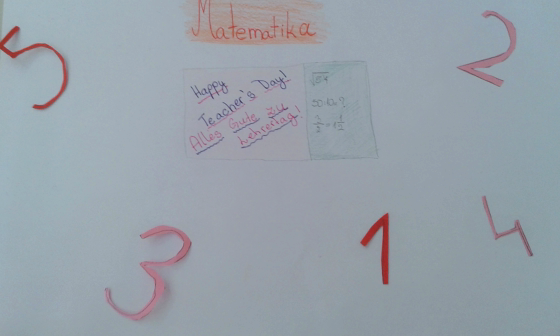 Matematika
5
2
Happy
Teacher's Day!
Alles Gute zum
Lehrertag!
3
1
4